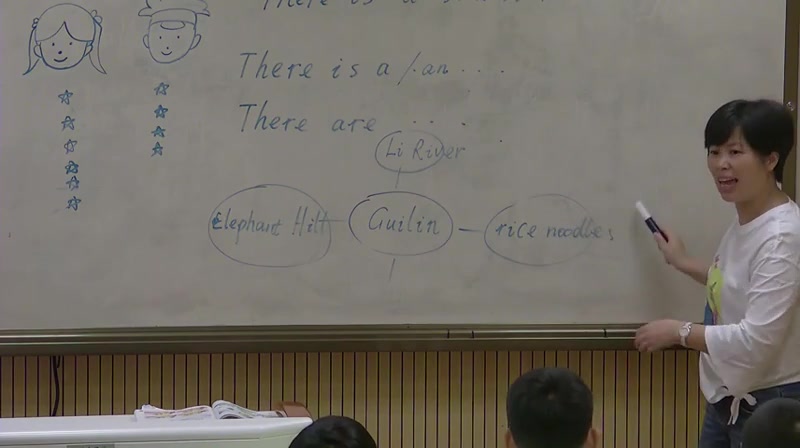 There is a
There is a /an ...
There are ...
Li River
Elephant Hill
Guilin
rice noodles